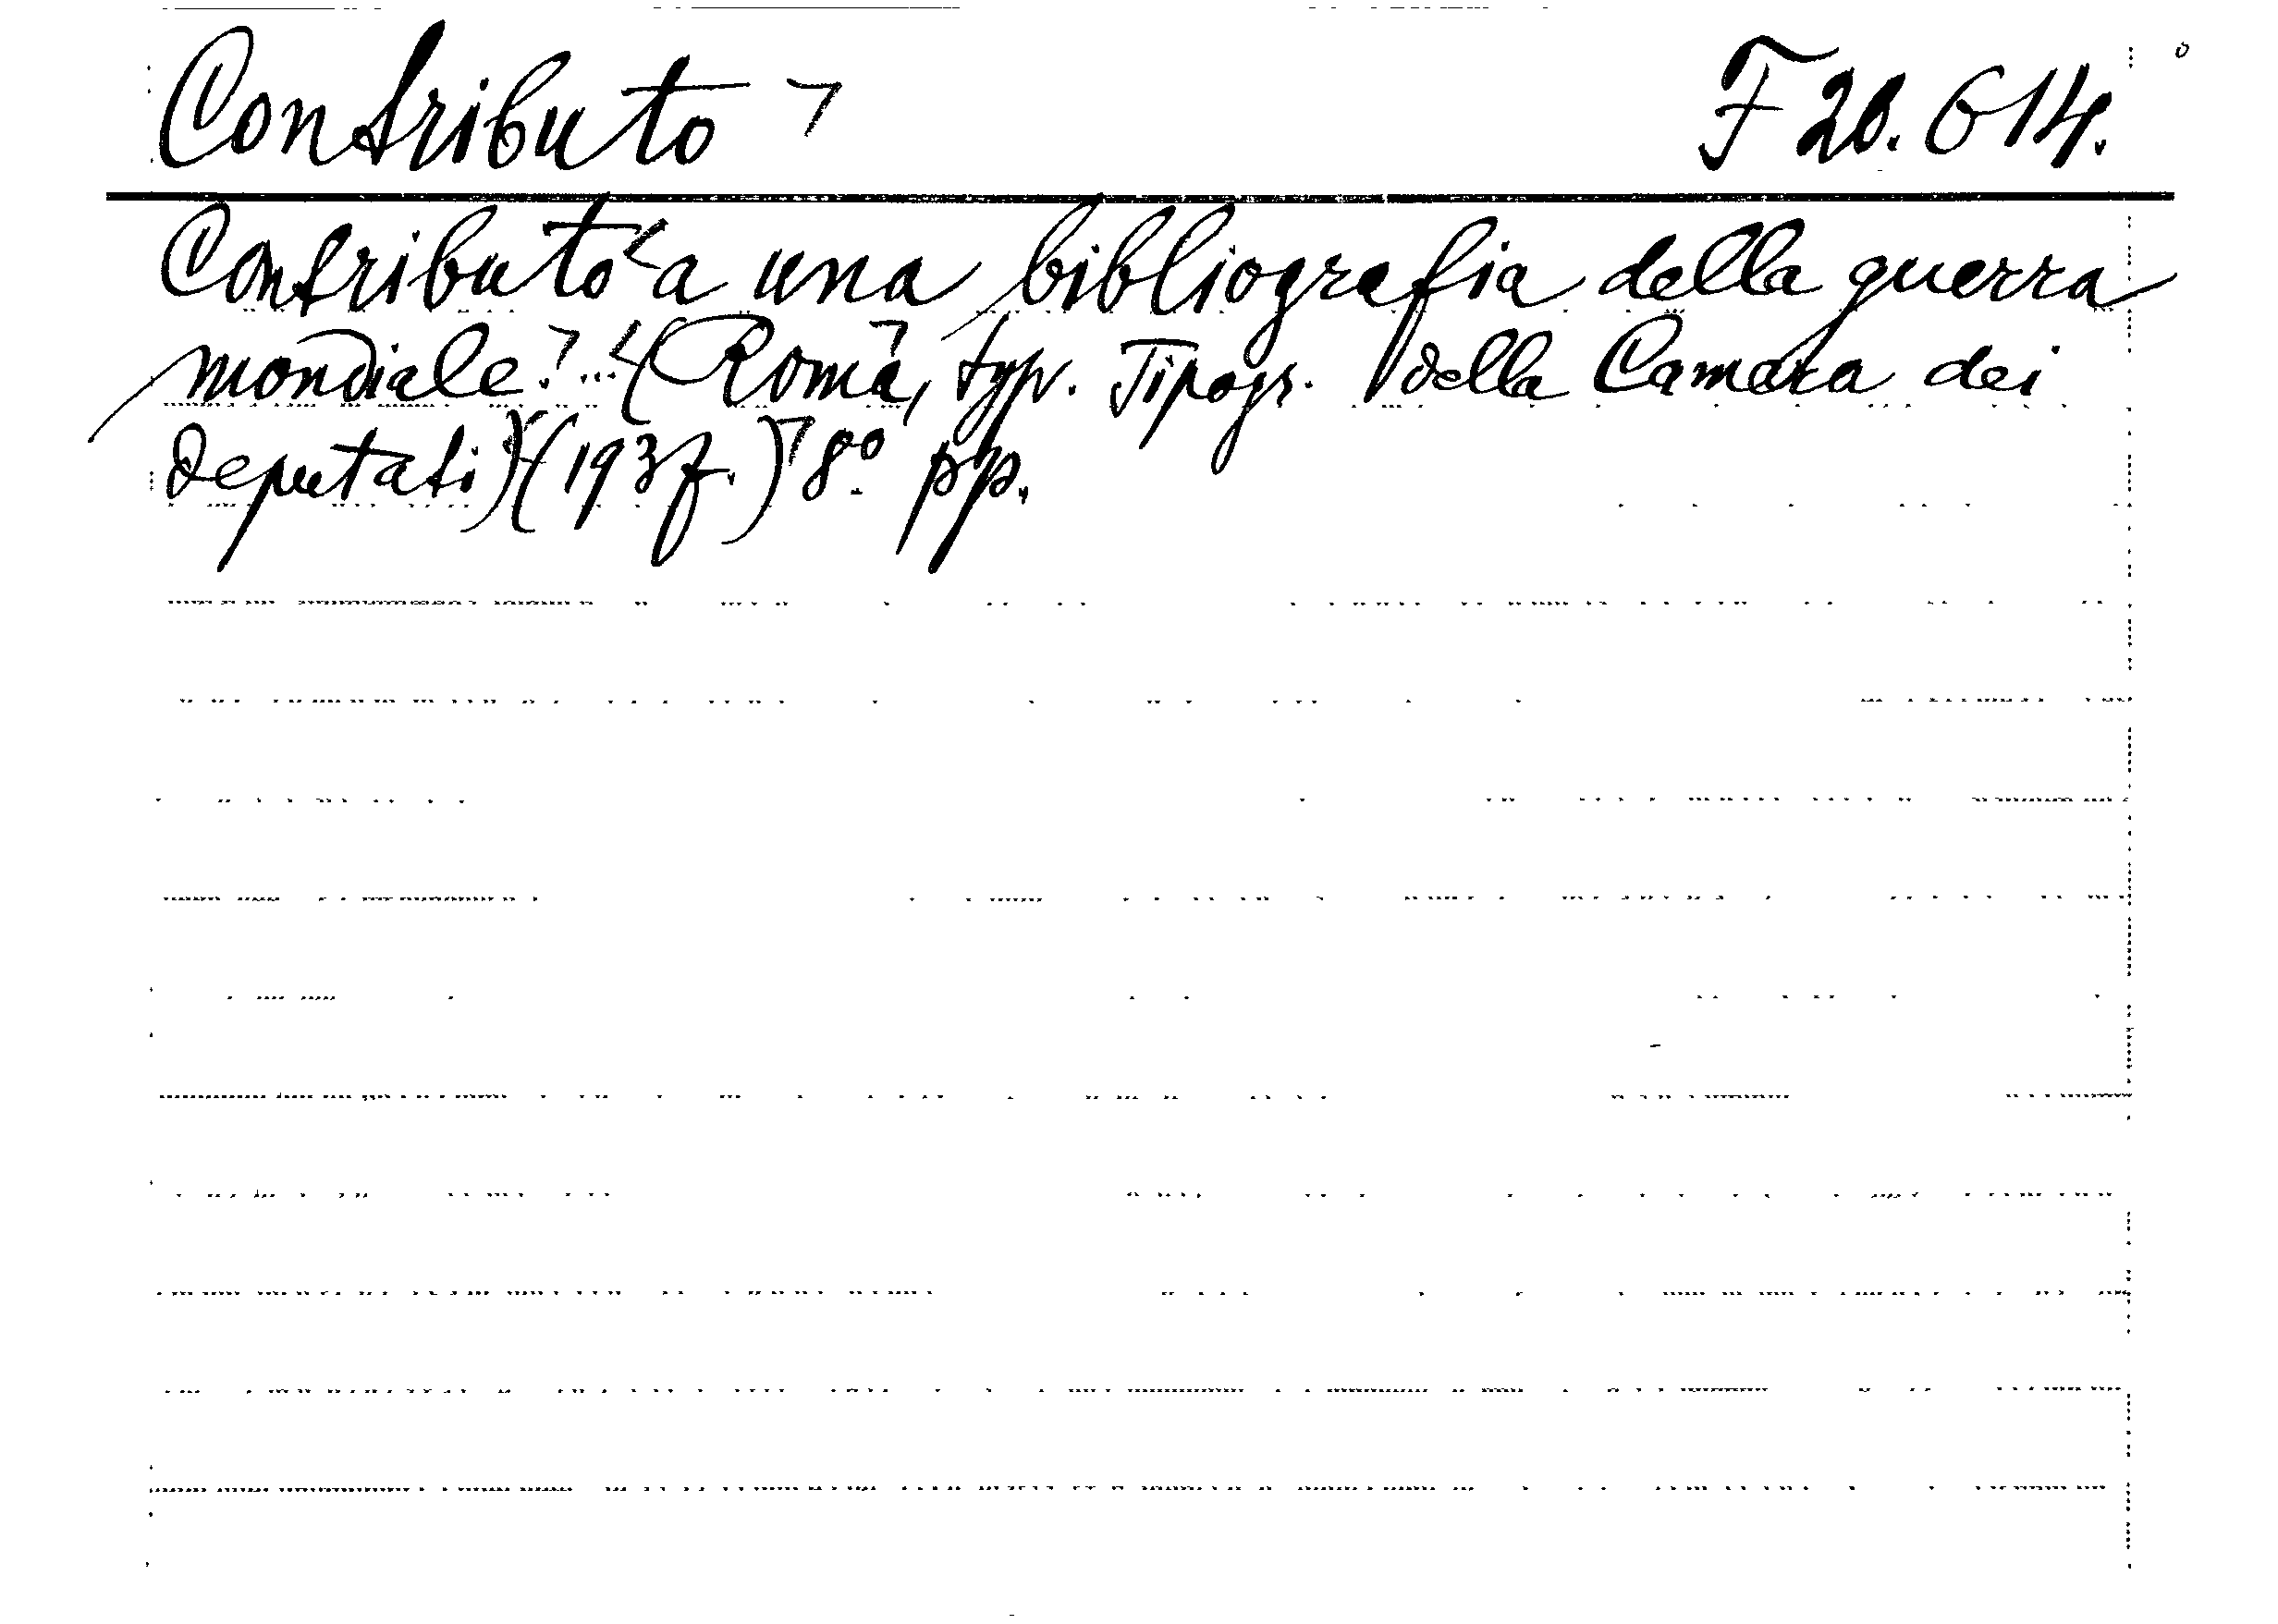 Contributo ⌝ F 20.614.
Contributo < a una bibliografia della guerra
mondiale.⌝...<(Roma⌝, typ. Tipogr. della Camera dei
Deputati)<(193?.)⌝ 8° pp.